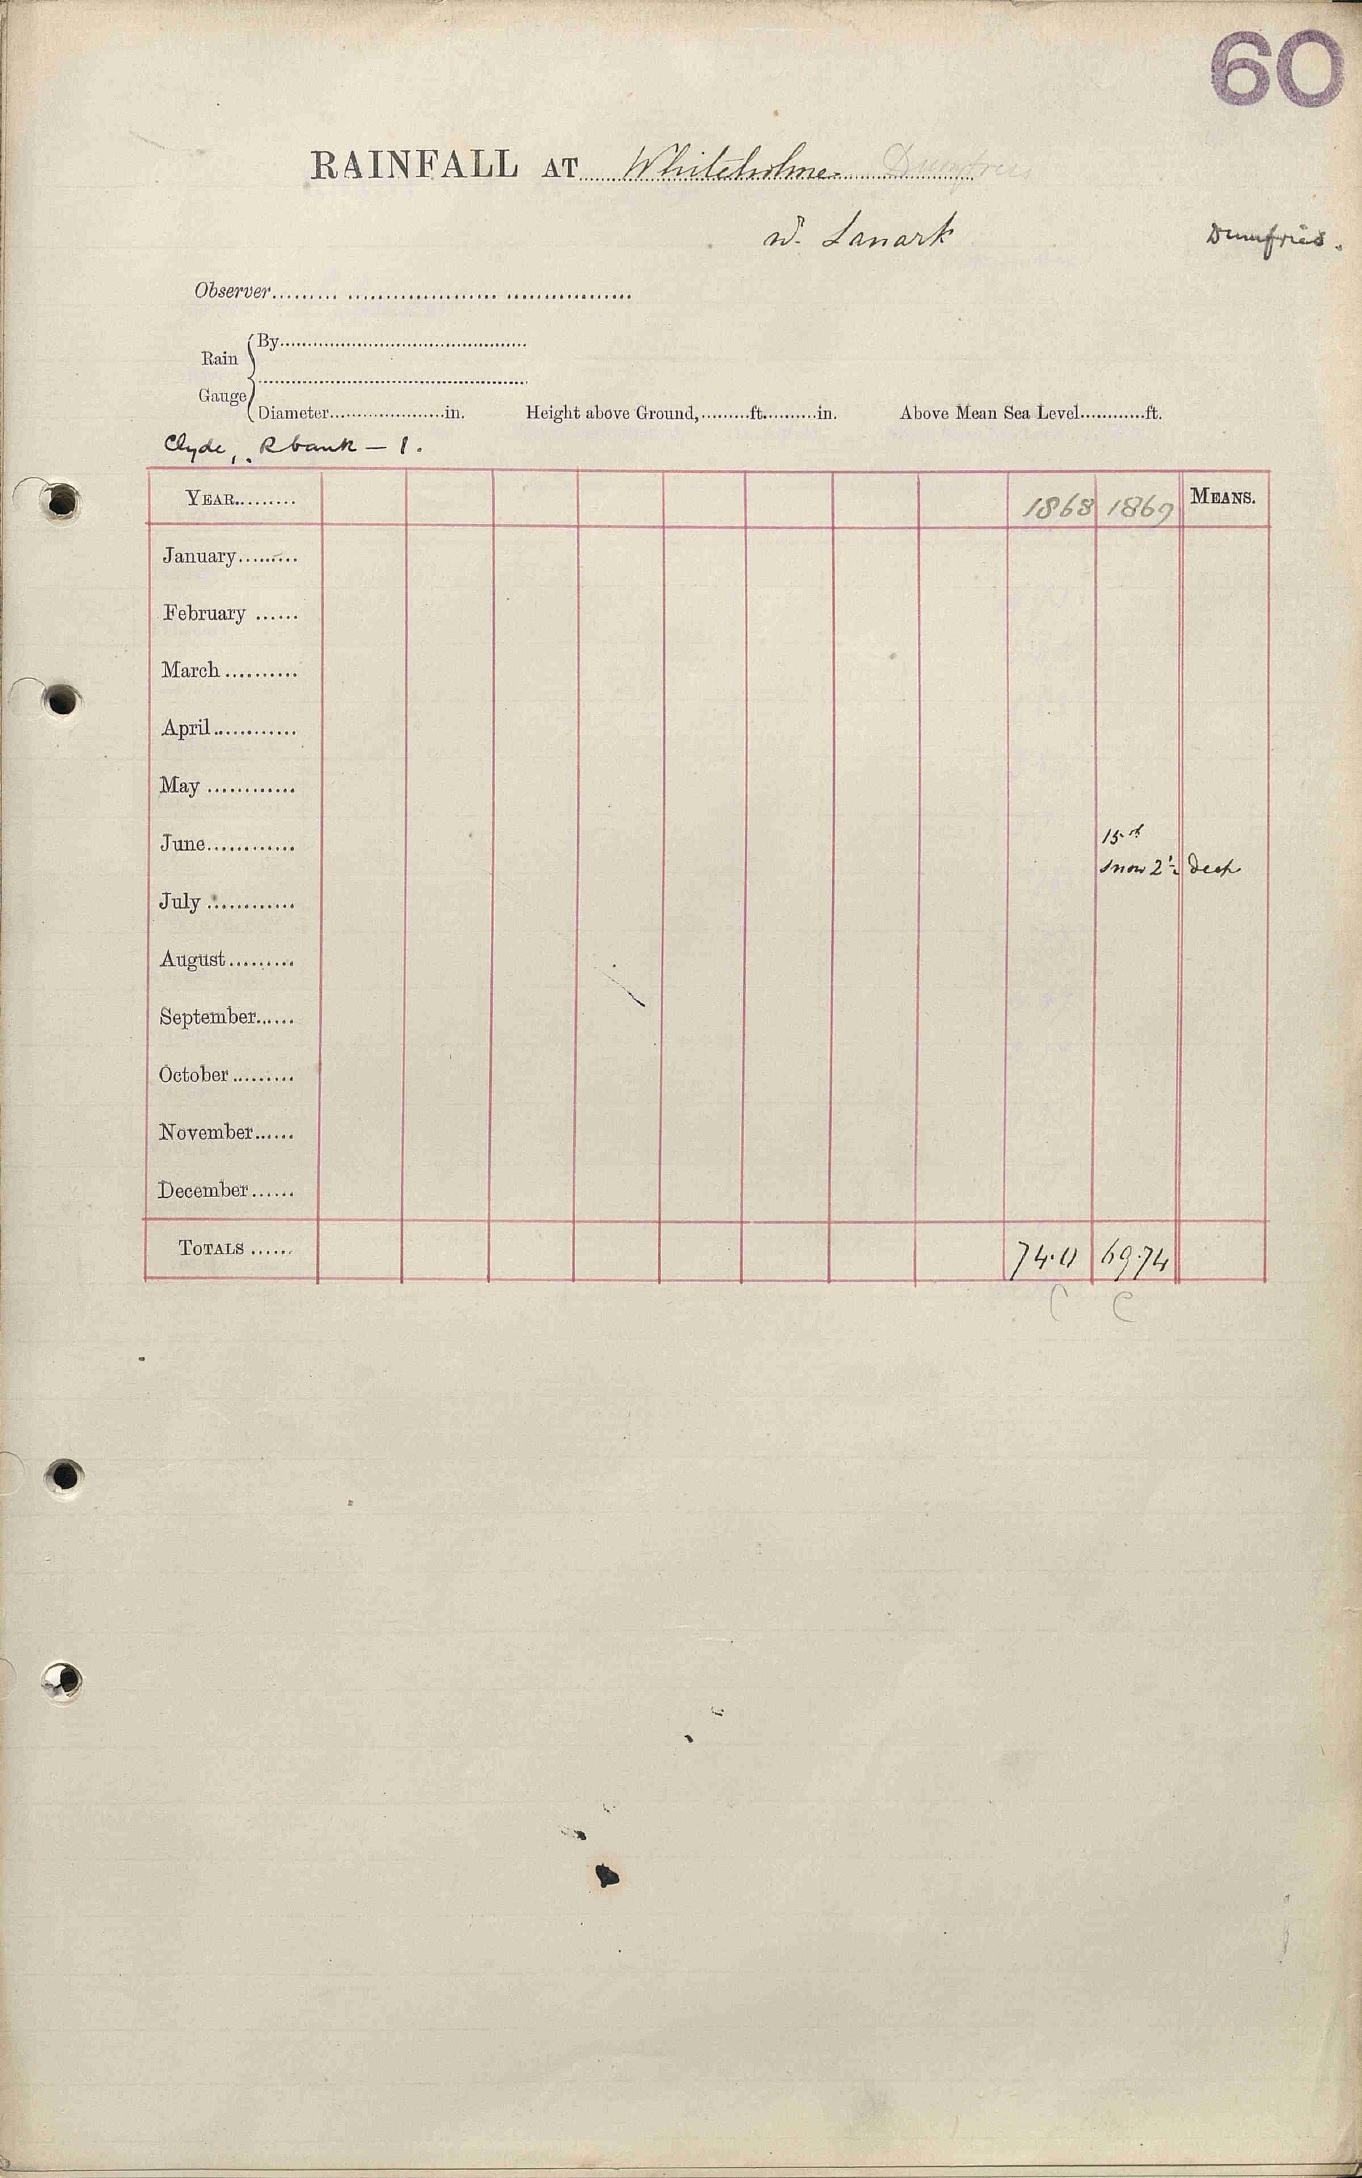 60
RAINFALL AT Whiteholme Dumfries
Lanark
Dumfries.
Observer
Rain Gauge
By
Diameter in. Height above Ground, ft. in. Above Mean Sea Level ft.
Clyde, Rbank - 1.
YEAR 1868 1869 MEANS.
January
February
March
April
May
June 15th
Snow 2½ deep
July
August
September
October
November
December
TOTALS 74.0 69.74
C C